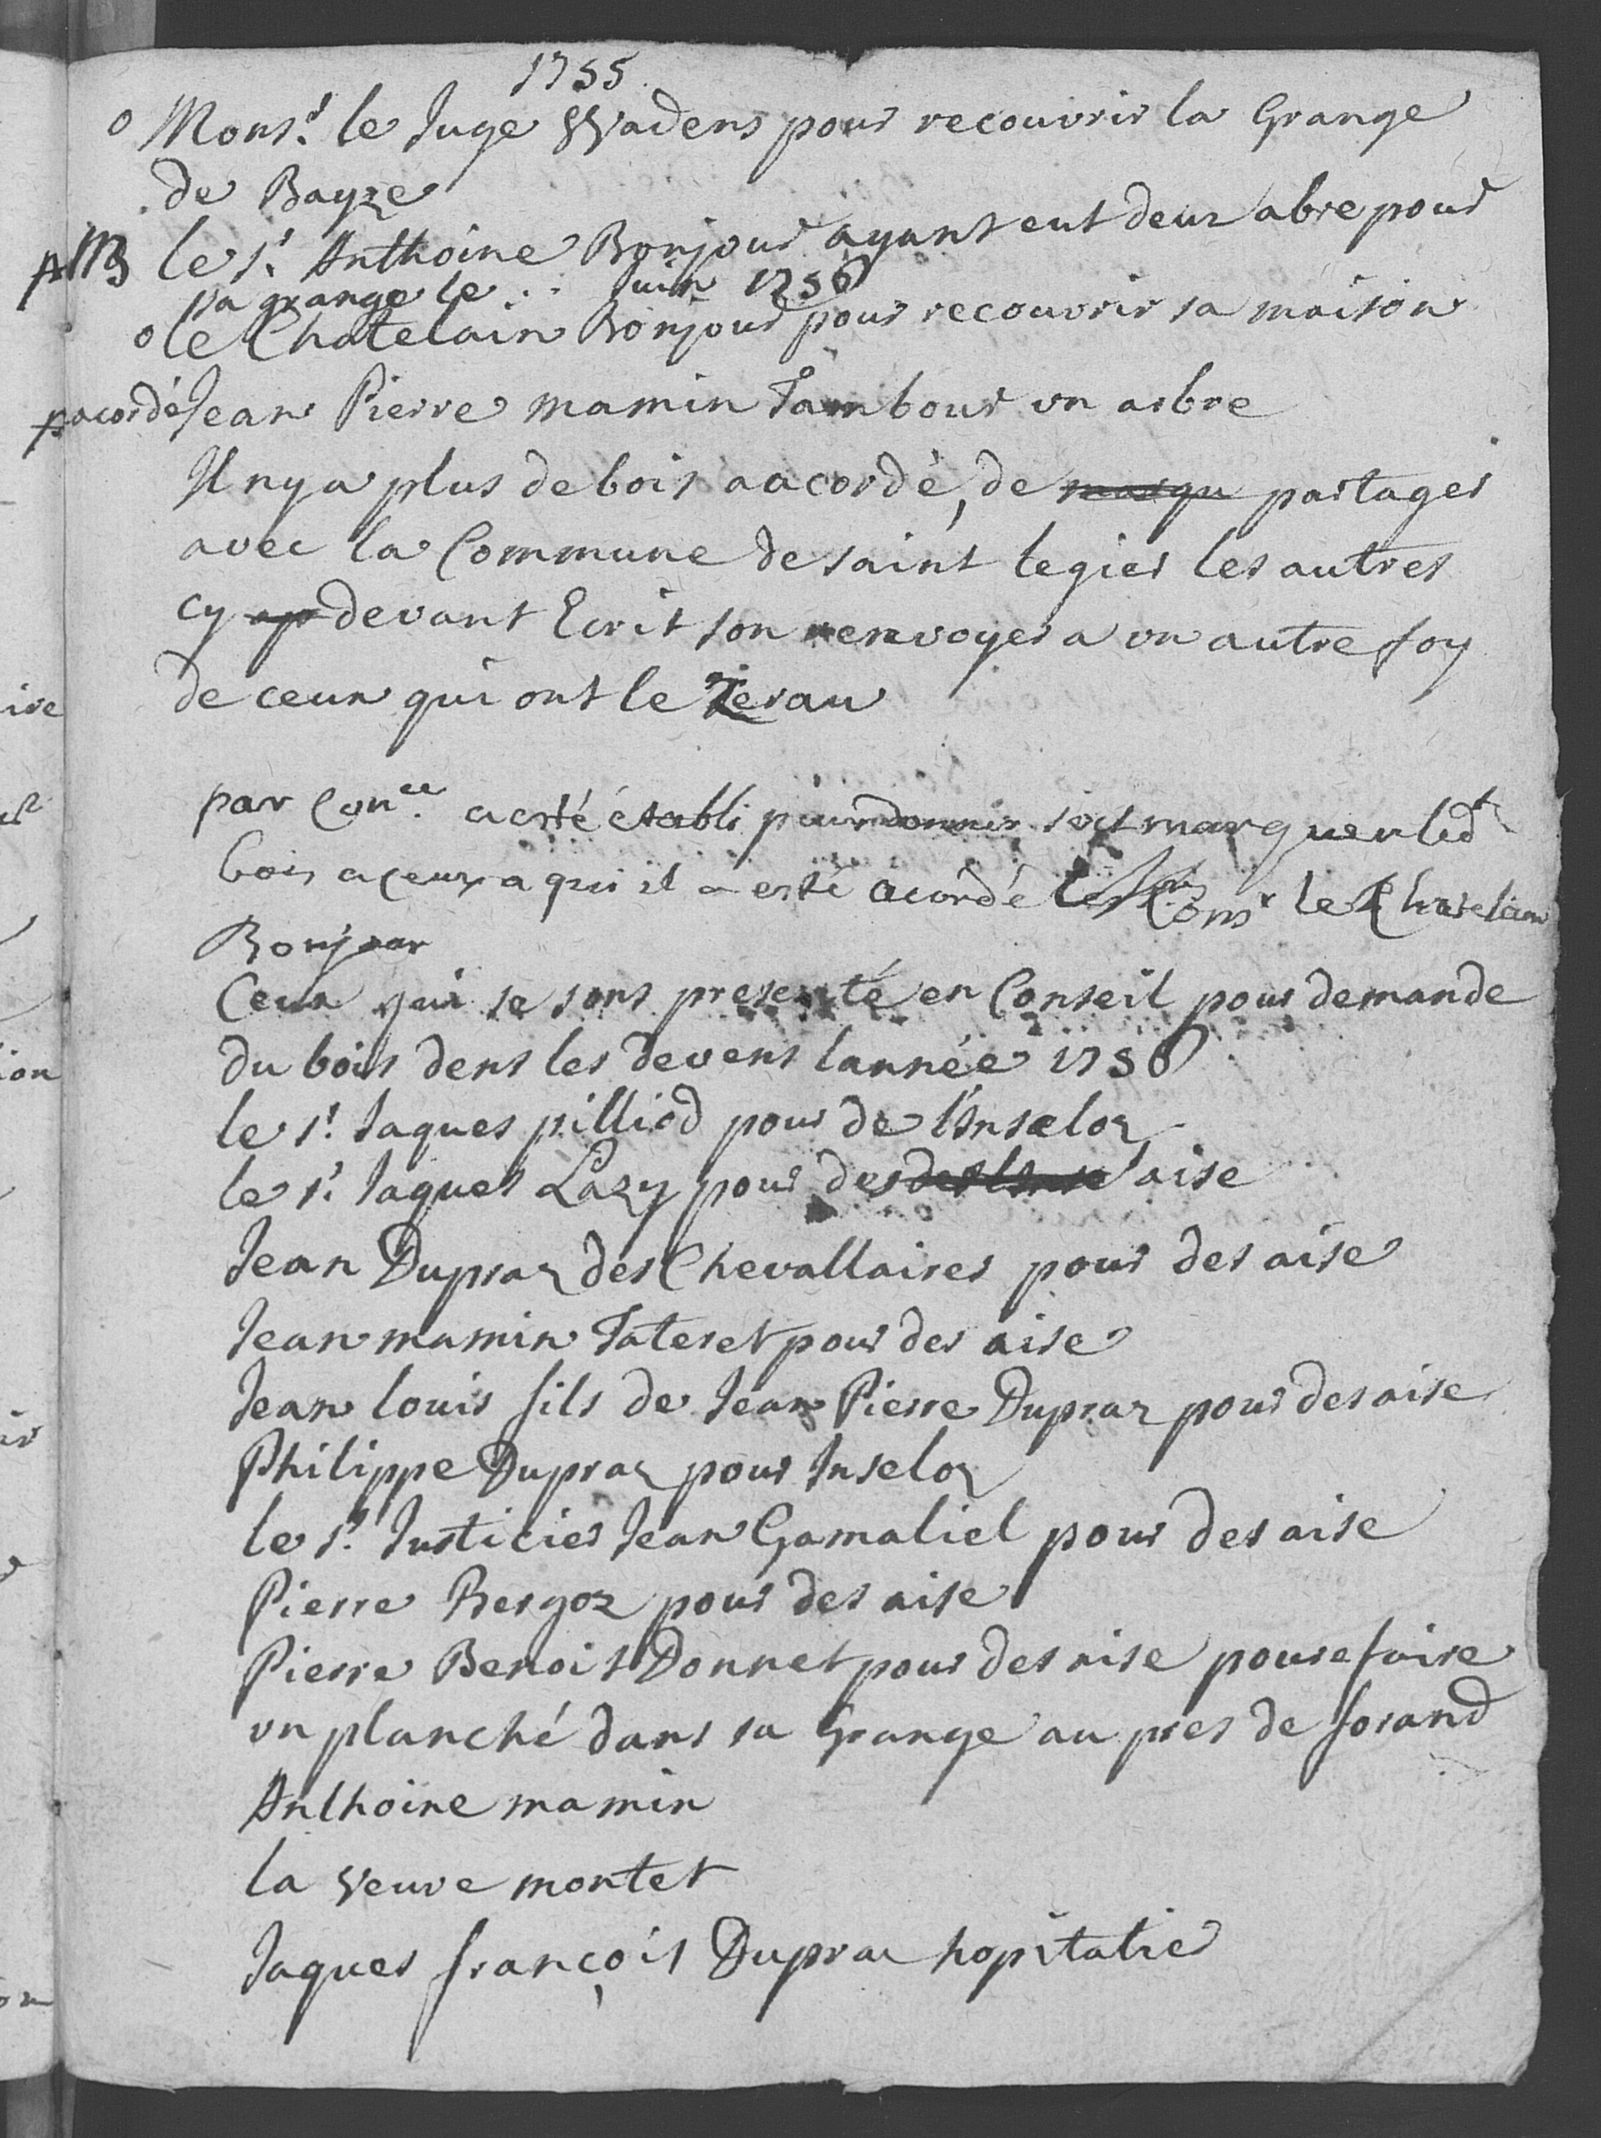 1755
o Mons.r le Juge Vadens pour recouvrir la Grange
de Bayze
le s.r Anthoine Bonjour ayant eut deux abre pour
sa grange le .. Juin 1756
o le Chatelain Bonjour pour recouvrir sa maison
acordé Jean Pierre mamin Tambour un arbre
Il ny a plus de bois a acordé, de marqu partager
avec la Commune de saint legier les autres
cy ap devant Ecrit son renvoyer a un autre foy
de ceux qui ont le Zerau
par Con.ce a esté établi pour donner soit marquer led.t
bois a ceux a qui il a esté acordé les Mons.r le Chatelain
Bonjour
Ceux qui se sons presenté en Conseil pour demande
du bois dens les devens lannée 1756
le s.r Jaques pilliod pour de l'Inseloz
le s.r Jaques Lazy pour des aise
Jean Dupraz des Chevallaires pour des aise
Jean mamin Tateret pour des aise
Jean louis fils de Jean Pierre Dupraz pour des aise
Philippe Dupraz pour Inseloz
le s.r Justicier Jean Gamaliel pour des aise
Pierre Bergoz pour des aise
Pierre Benoit Donnet pour des aise pourefaire
un planché dans sa Grange au pres de forand
Anthoine mamin
la veuve montet
Jaques françois Dupraz hopitalie